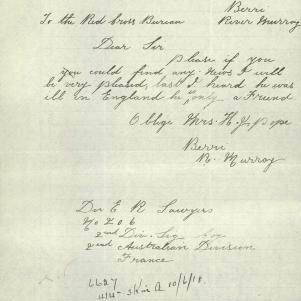 Berri
To the Red Cross Bureau River Murray
Dear Sir
Please if you
you could find any news I will
be very pleased, last I heard he was
ill in England he "only a Friend
Oblige Mrs. H. J. Pope
Berri
R. Murray
Dvr E R Sawyers
No 206
2nd Div. Sig. Coy
2nd Australian Division
France
10/6/18